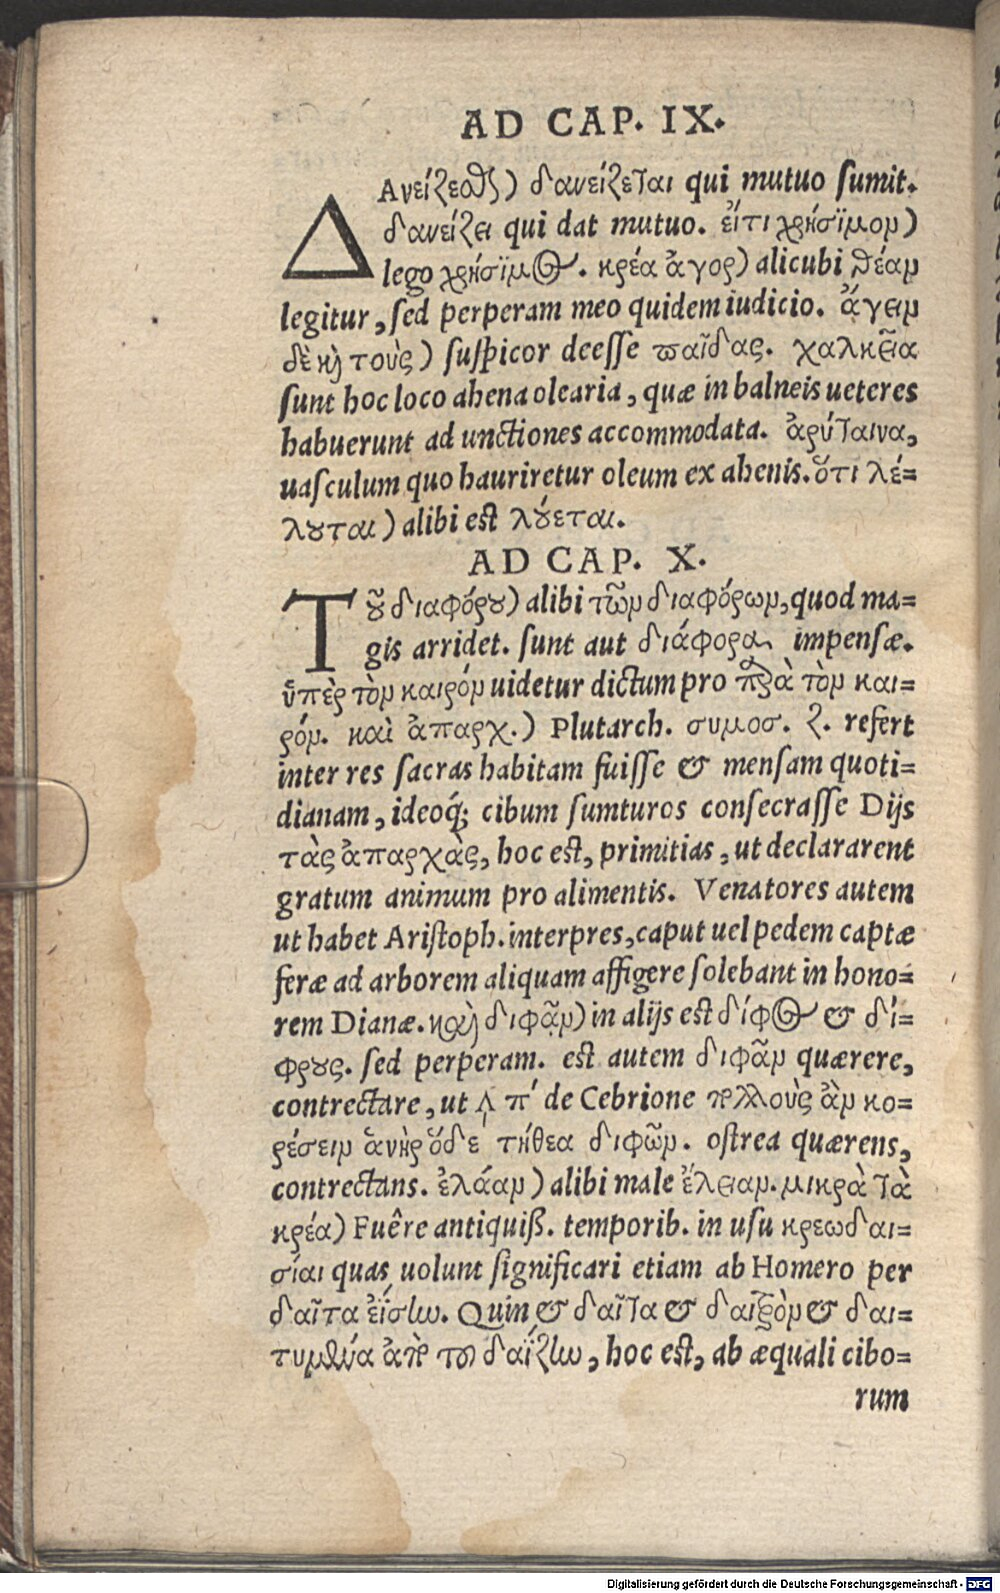 AD CAP. IX.
ΔΑνείζεσθαι) δανείζεται qui mutuo sumit.
δανείζει qui dat mutuo. εἴτι χρήσϊμον)
lego χρήσϊμος. κρέα ἄγον) alicubi θέαν
legitur, sed perperam meo quidem iudicio. ἄγειν
δὲ καὶ τοὺς) suspicor deesse παῖδας. χαλκεῖα
sunt hoc loco ahena olearia, quæ in balneis ueteres
habuerunt ad unctiones accommodata. ἀρύταινα,
uasculum quo hauriretur oleum ex ahenis. ὅτι λέ=
λουται) alibi est λούεται.
AD CAP. X.
Τοῦ διαφόρου) alibi τῶν διαφόρων, quod ma=
gis arridet. sunt aut διάφορα impensæ.
ὑπὲρ τὸν καιρόν uidetur dictum pro παρὰ τὸν και=
ρόν. καὶ ἀπαρχ.) Plutarch. συμοσ. ζ. refert
inter res sacras habitam fuisse & mensam quoti=
dianam, ideoq́; cibum sumturos consecrasse Dijs
τὰς ἀπαρχὰς, hoc est, primitias, ut declararent
gratum animum pro alimentis. Venatores autem
ut habet Aristoph. interpres, caput uel pedem captæ
feræ ad arborem aliquam affigere solebant in hono=
rem Dianæ. καὶ διφᾷν) in alijs est δίφρος & δί=
φρους. sed perperam. est autem διφᾶν quærere,
contrectare, ut π' de Cebrione πολλοὺς ἂν κο=
ρέσειν ἀνὴρ ὅδε τήθεα διφῶν. ostrea quærens,
contrectans. ἐλάαν) alibi male ἔλειαν. μικρὰ τὰ
κρέα) Fuêre antiquiß. temporib. in usu κρεωδαι=
σίαι quas uolunt significari etiam ab Homero per
δαῖτα ἐΐσην. Quin & δαῖτα & δαιτρὸν & δαι=
τυμόνα ἀπὸ τοῦ δαΐζειν, hoc est, ab æquali cibo=
rum
Digitalisierung gefördert durch die Deutsche Forschungsgemeinschaft - DFG